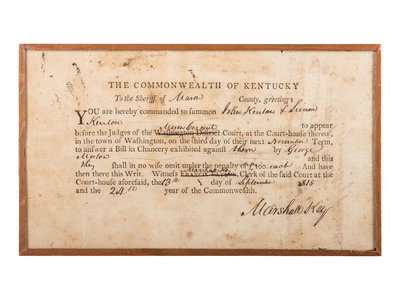 THE COMMONWEALTH OF KENTUCKY
To the Sheriff of Mason County, greeting:
YOU are hereby commanded to summon John Kenton & Simon
Kenton to appear
Mason Circuit
before the Judges of the Washington District Court, at the Court-house thereof,
in the town of Washington, on the third day of their next November Term,
to answer a Bill in Chancery exhibited against them by George
and this
they shall in no wise omit under the penalty of £100 each And have
then there this Writ. Witness Marshall Key Clerk of the said Court at the
Court-house aforesaid, the 13th day of September 1815
and the 24th year of the Commonwealth.
Marshall Key